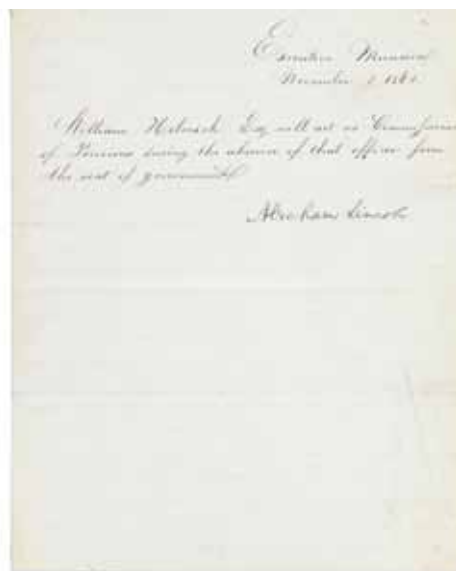 Executive Mansion
November
William Helmick Esq will act as Commissioner
of Pensions during the absence of that officer from
the seat of government
Abraham Lincoln